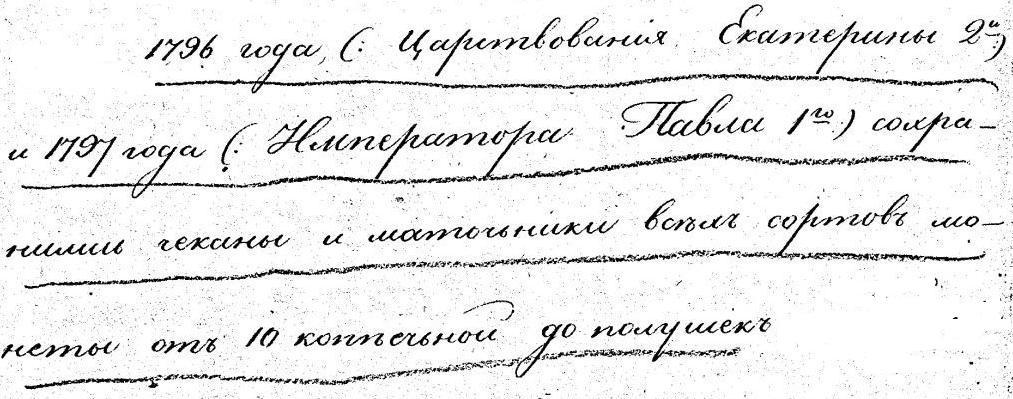 1796 года, (: Царствованія Екатерины 2й:)
и 1797 года (: Императора Павла 1го) сохра-
нились чеканы и маточьники всѣхъ сортовъ мо-
неты отъ 10 копѣечьной до полушекъ